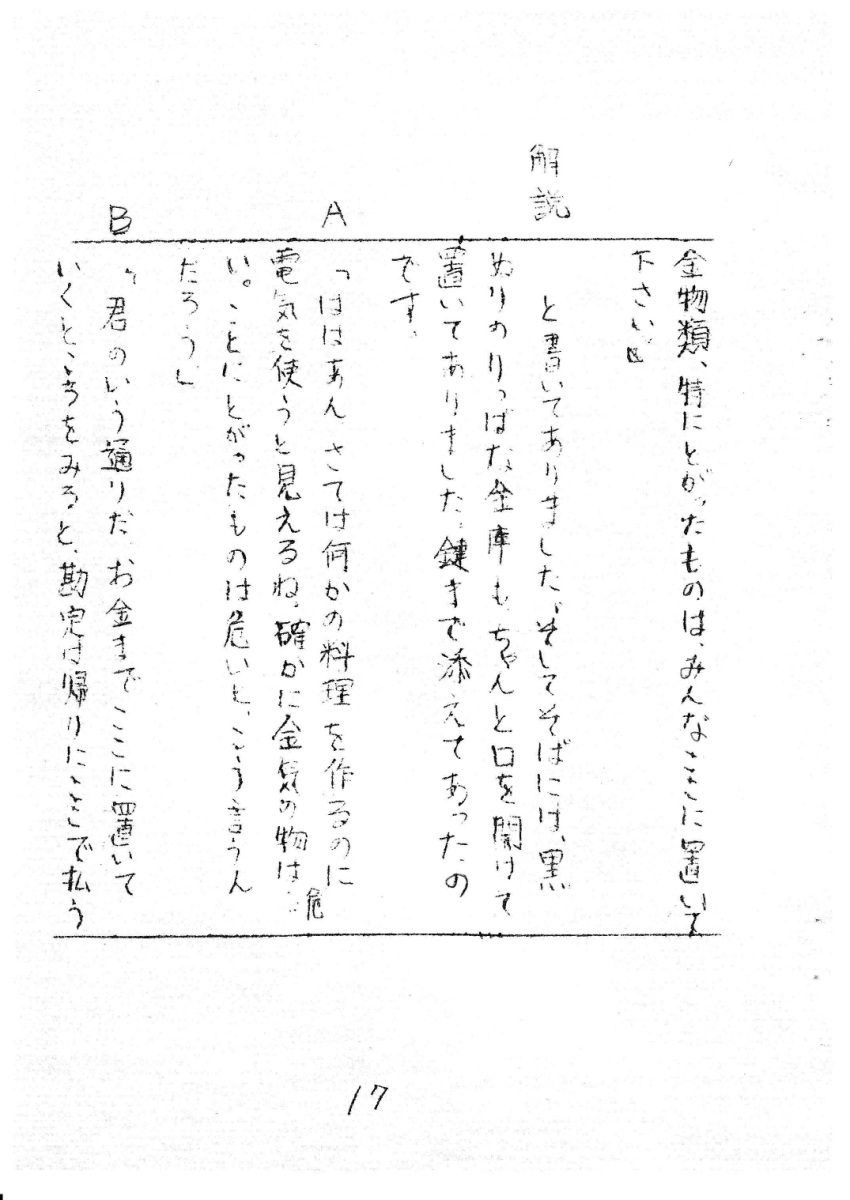 金物類、特にとがったものは、みんなここに置いて
下さい。』
解説
と書いてありました。そしてそばには、黒
ぬりのりっぱな金庫も、ちゃんと口を開けて
置いてありました。鍵まで添えてあったの
です。
A
「ははあん、さては何かの料理を作るのに
電気を使うと見えるね。確かに金気の物は危
い。ことにとがったものは危いと、こう言うん
だろう。」
B
「君のいう通りだ。お金までここに置いて
いくところをみると、勘定は帰りにここで払う
17